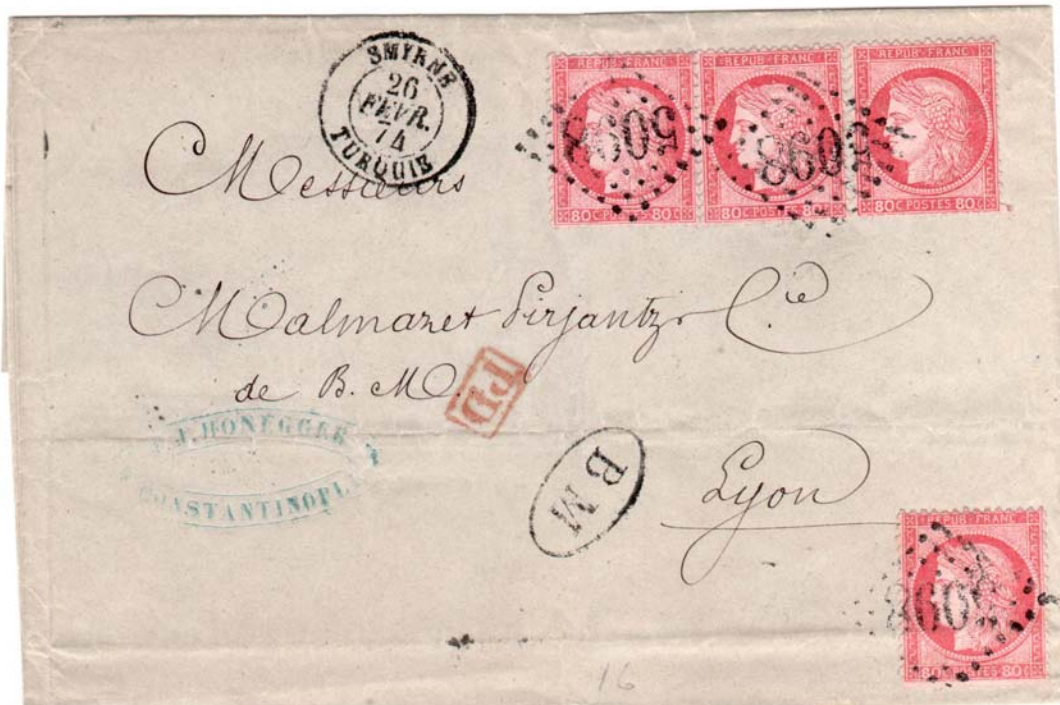 SMYRNE
26
FEVR.
74
TURQUIE
REPUB·FRANC
80C POSTES 80C
REPUB·FRANC
80C POSTES 80C
REPUB·FRANC
80C POSTES 80C
5098
5098
Messieurs
Malmazet Pirjantz & Cie
de B. M.
PD
J. HONEGGER
CONSTANTINOPLE
BM
Lyon
REPUB·FRANC
80C POSTES 80C
5098
16